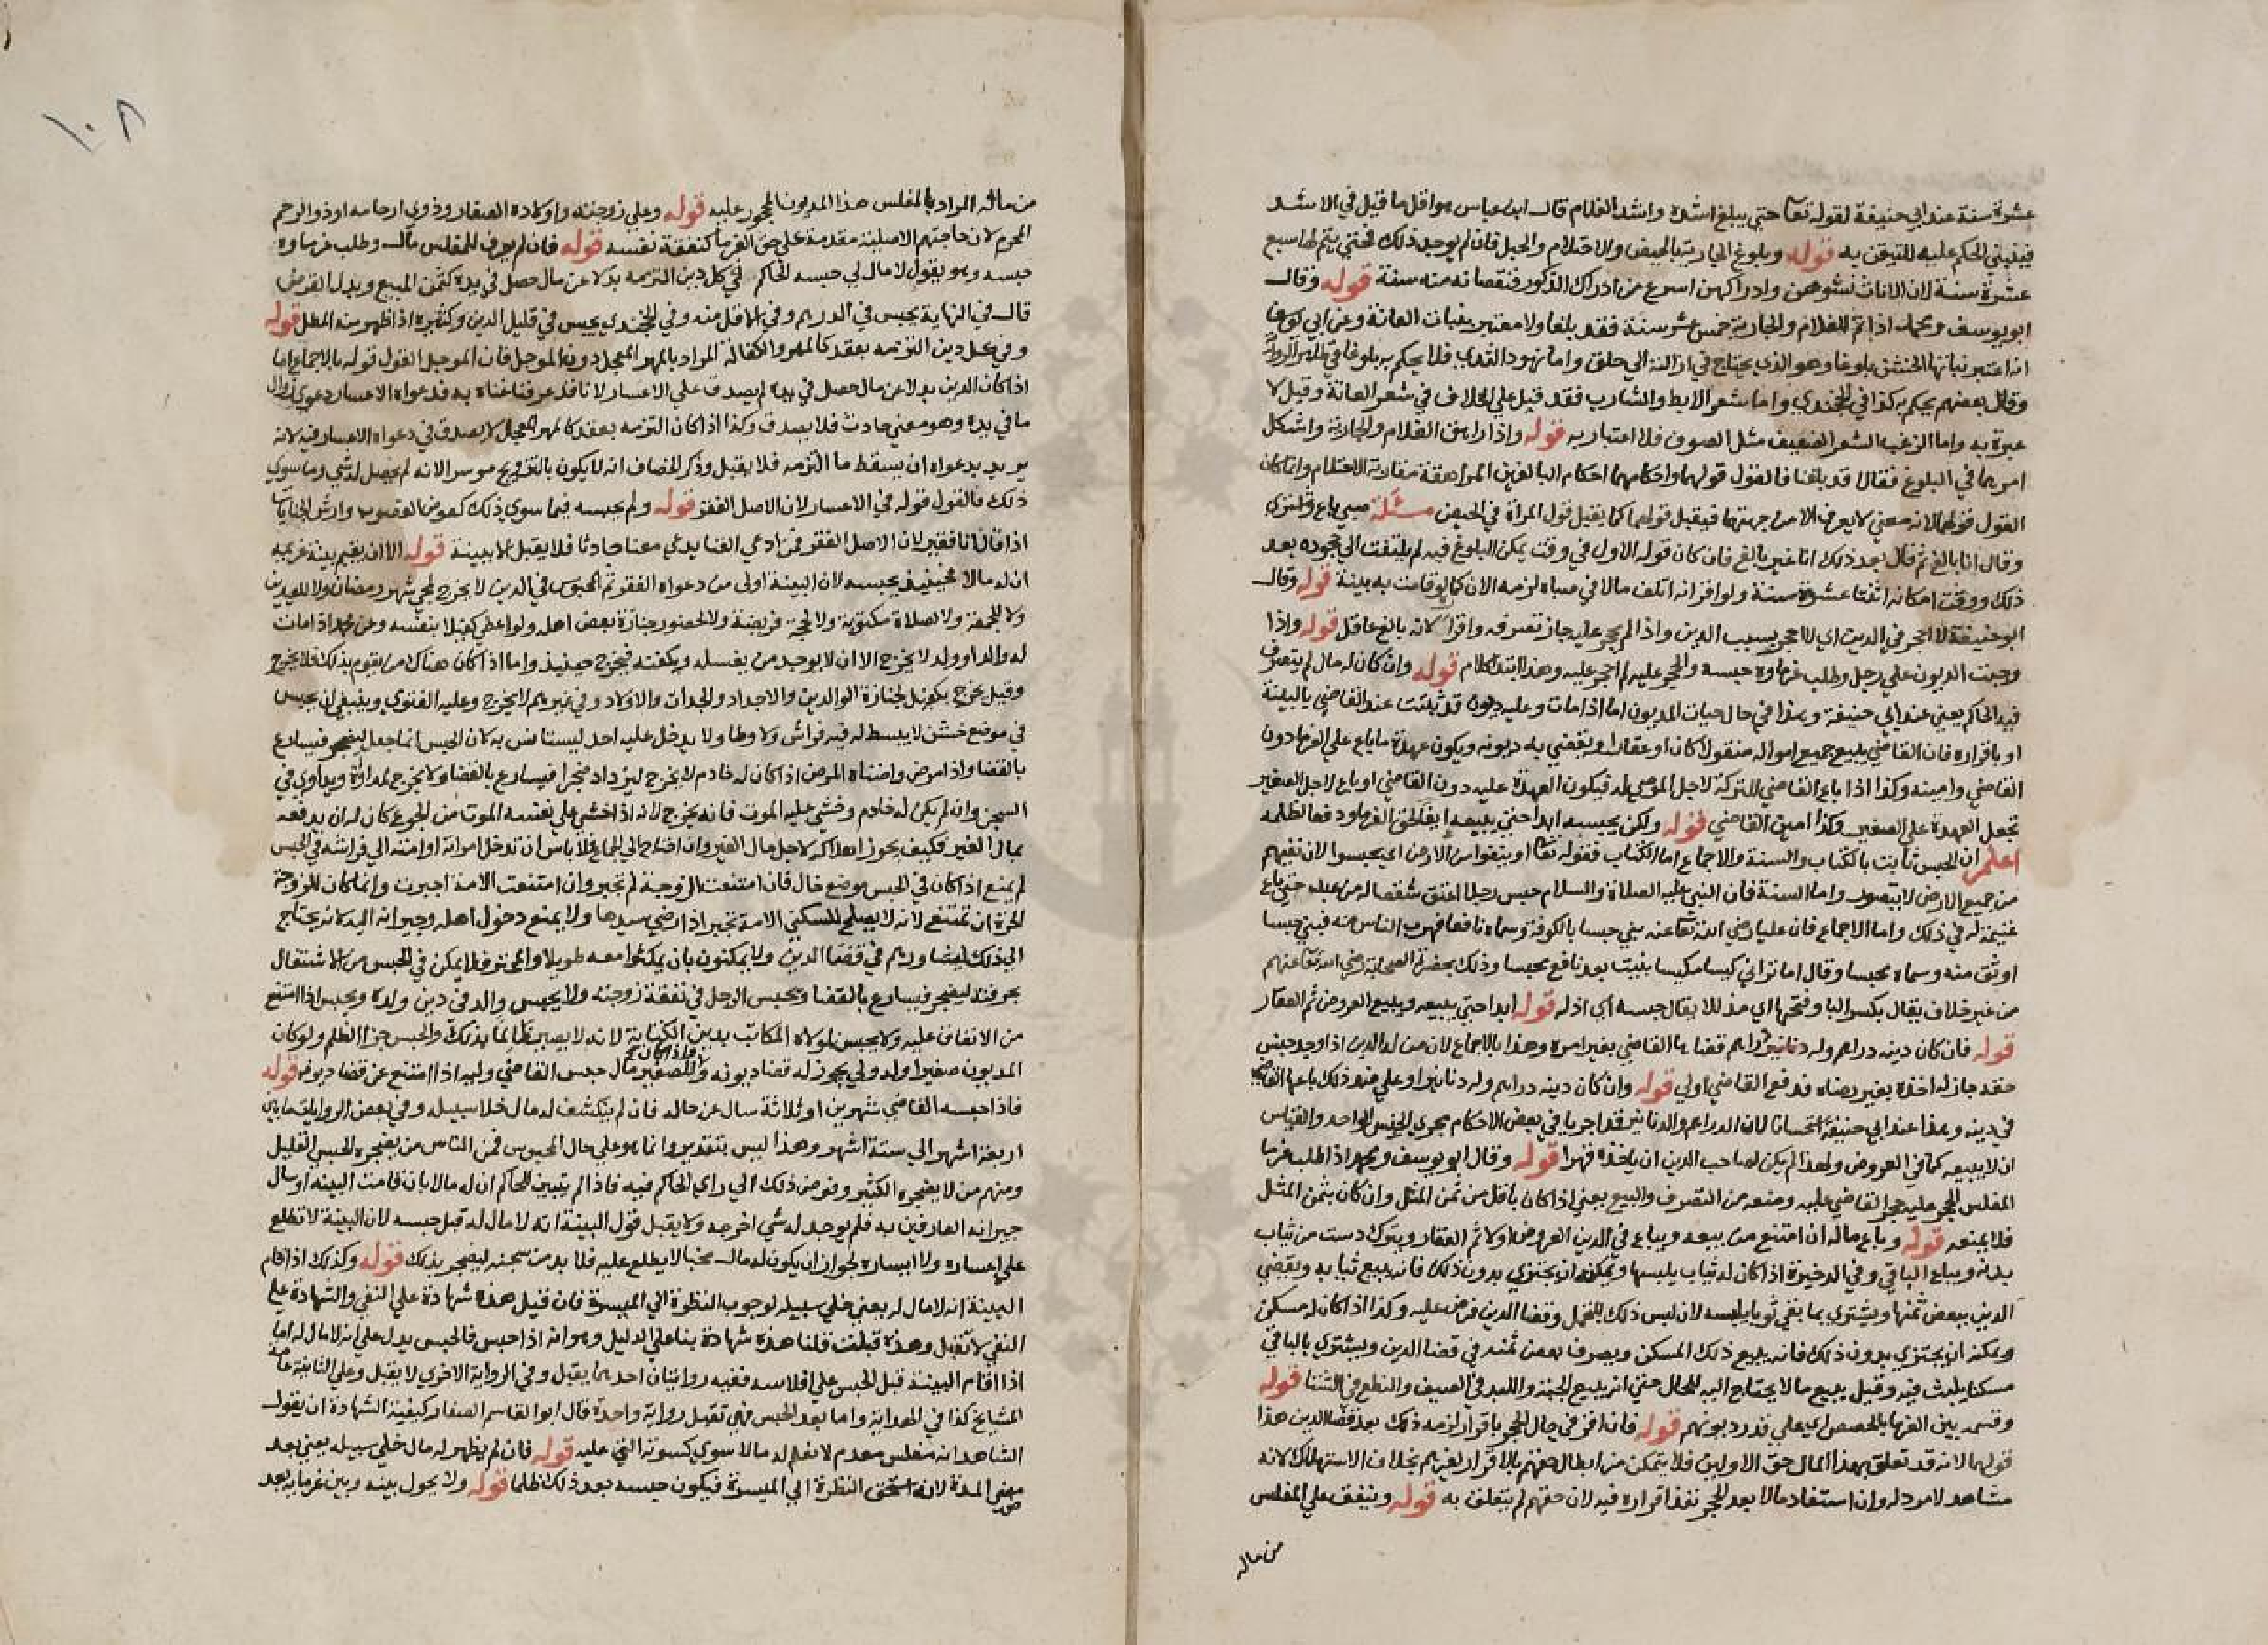 عشرة سنة عند ابي حنيفة لقوله تعا حتي يبلغ اشده واشد الغلام قال ابن عباس هو اقل ما قيل في الاشد
فينبني الحكم عليه للتيقن به قوله وبلوغ الجارية بالحيض والاحتلام والحبل فان لم يوجد ذلك فحتي يتم لها سبع
عشرة سنة لان الاناث نشوهن وادراكهن اسرع من ادراك الذكور فنقصانه منه سنة قوله وقال
ابو يوسف ومحمد اذا تم للغلام والجارية خمس عشر سنة فقد بلغا ولا معتبر بنبات العانة وعن ابي يوسف
انه اعتبر نباتها الخشن بلوغا وهو الذي يحتاج في ازالته الي حلق واما نهود الثدي فلا يحكم به بلوغا في ظاهر الرواية
وقال بعضهم يحكم به كذا في الخجندي واما شعر الابط والشارب فقد قيل علي الخلاف في شعر العانة وقيل لا
عبرة به واما الزغب الشعر الضعيف مثل الصوف فلا اعتبار به قوله واذا راهق الغلام والجارية واشكل
امرهما في البلوغ فقالا قد بلغنا فالقول قولهما واحكامهما احكام البالغين المراهقة مقاربة الاحتلام وانما كان
القول قولهما لانه معني لا يعرف الا من جهتهما فيقبل قولهما كما يقبل قول المراة في الحيض مسئلة صبي باع واشتري
وقال انا بالغ ثم قال بعد ذلك انا غير بالغ فان كان قوله الاول في وقت يمكن البلوغ فيه لم يلتفت الي جحوده بعد
ذلك ووقت امكانه اثنتا عشرة سنة ولو اقر انه اتلف مالا في صباه لزمه الان كما لو قامت به بينة قوله وقال
ابو حنيفة لا احجر في الدين اي لا احجر بسبب الدين واذا لم يحجر عليه جاز تصرفه واقراره لانه بالغ عاقل قوله واذا
وجبت الديون علي رجل وطلب غرماوه حبسه والحجر عليه لم احجر عليه وهذا ابتدا كلام قوله وان كان له مال لم يتصرف
فيه الحاكم يعني عند ابي حنيفة وهذا في حال حيات المديون اما اذا مات وعليه ديون قد ثبتت عند القاضي بالبينة
او باقراره فان القاضي يبيع جميع امواله منقولا كان او عقارا ويقضي به ديونه ويكون عهدة ما باع علي الغرما دون
القاضي وامينه وكذا اذا باع القاضي التركة لاجل الموصي له فيكون العهدة عليه دون القاضي او باع لاجل الصغير
تجعل العهدة علي الصغير وكذا امين القاضي قوله ولكن يحبسه ابدا حتي يبيعه ايفا لحق الغرما ودفعا لظلمه
اعلم ان الحبس ثابت بالكتاب والسنة والاجماع اما الكتاب فقوله تعا او ينفوا من الارض اي يحبسوا لان نفيهم
من جميع الارض لا يتصور واما السنة فان النبي عليه الصلاة والسلام حبس رجلا اعتق شقصا له من عبد حتي باع
غنيمة له في ذلك واما الاجماع فان عليا رضي الله تعا عنه بني حبسا بالكوفة وسماه نافعا فهرب الناس منه فبني حبسا
اوثق منه وسماه مخيسا وقال اما تراني كيسا مكيسا بنيت بعد نافع مخيسا وذلك بحضرة الصحابة رضي الله تعا عنهم
من غير خلاف يقال بكسر اليا وفتحها اي مذللا يقال خيسه اي اذله قوله ابدا حتي يبيعه ويبيع العروض ثم العقار
قوله فان كان دينه دراهم وله دنانير دراهم قضا ها القاضي بغير امره وهذا بالاجماع لان من له الدين اذا وجد جنس
حقه جاز له اخذه بغير رضاه فدفع القاضي اولي قوله وان كان دينه دراهم وله دنانير او علي ضد ذلك باعها القاضي
في دينه وهذا عند ابي حنيفة استحسانا لان الدراهم والدنانير قد اجريا في بعض الاحكام مجري الجنس الواحد والقياس
ان لا يبيعه كما في العروض ولهذا لم يكن لصاحب الدين ان ياخذه قهرا قوله وقال ابو يوسف ومحمد اذا طلب غرما
المفلس الحجر عليه حجر القاضي عليه ومنعه من التصرف والبيع يعني اذا كان باقل من ثمن المثل وان كان بثمن المثل
فلا يمنعه قوله وباع ماله ان امتنع من بيعه ويباع في الدين العروض اولا ثم العقار ويترك دست من ثياب
بدنه ويباع الباقي وفي الذخيرة اذا كان له ثياب يلبسها ويمكنه ان يجتزي بدون ذلك فانه يبيع ثيابه ويقضي
الدين ببعض ثمنها ويشتري بما بقي ثوبا يلبسه لان لبس ذلك للتجمل وقضا الدين فرض عليه وكذا اذا كان له مسكن
ويمكنه ان يجتزي بدون ذلك فانه يبيع ذلك المسكن ويصرف بعض ثمنه في قضا الدين ويشتري بالباقي
مسكنا يلبث فيه وقيل يبيع ما لا يحتاج اليه للحال حتي انه يبيع الجبة واللبد في الصيف والنطع في الشتا قوله
وقسمه بين الغرما بالحصص اي علي قدر ديونهم قوله فان اقر في حال الحجر باقرار لزمه ذلك بعد قضا الدين هذا
قولهما لانه قد تعلق بهذا المال حق الاولين فلا يتمكن من ابطال حقهم بالاقرار لغيرهم بخلاف الاستهلاك لانه
مشاهد لا مرد له وان استفاد مالا بعد الحجر نفذ اقراره فيه لان حقهم لم يتعلق به قوله وينفق علي المفلس
من ماله
١٠٨
من ماله المراد بالمفلس هذا المديون المحجور عليه قوله وعلي زوجته واولاده الصغار وذوي ارحامه او ذو الرحم
المحرم لان حاجتهم الاصلية مقدمة علي حق الغرما كنفقة نفسه قوله فان لم يعرف للمفلس مال وطلب غرماوه
حبسه وهو يقول لا مال لي حبسه الحاكم في كل دين التزمه بدلا عن مال حصل في يده كثمن المبيع وبدل القرض
قال في النهاية يحبس في الدرهم وفي الاقل منه وفي الخجندي يحبس في قليل الدين وكثيره اذا ظهر منه المطل قوله
وفي كل دين التزمه بعقد كالمهر والكفالة المراد بالمهر المعجل دون الموجل فان الموجل القول قوله بالاجماع اما
اذا كان الدين بدلا عن مال حصل في يده لم يصدق علي الاعسار لانا قد عرفنا غناه به فدعواه الاعسار دعوي زوال
ما في يده وهو معني حادث فلا يصدق وكذا اذا كان التزمه بعقد كالمهر المعجل لا يصدق في دعواه الاعسار فيه لانه
يريد بدعواه ان يسقط ما التزمه فلا يقبل وذكر الخصاف انه لا يكون بالتزويج موسرا لانه لم يحصل له شي وما سوي
ذلك فالقول قوله في الاعسار لان الاصل الفقر قوله ولم يحبسه فيما سوي ذلك كعوض المغصوب وارش الجنايات
اذا قال انا فقير لان الاصل الفقر فمن ادعي الغنا يدعي معنا حادثا فلا يقبل الا ببينة قوله الا ان يقيم بينة غريمه
ان له مالا فحينيذ يحبسه لان البينة اولي من دعواه الفقر ثم المحبوس في الدين لا يخرج لمجي شهر رمضان ولا للعيدين
ولا للجمعة ولا لصلاة مكتوبة ولا لحجة فريضة ولا لحضور جنازة بعض اهله ولو اعطي كفيلا بنفسه وعن محمد اذا مات
له والد او ولد لا يخرج الا ان لا يوجد من يغسله ويكفنه فيخرج حينيذ واما اذا كان هناك من يقوم بذلك فلا يخرج
وقيل يخرج بكفيل لجنازة الوالدين والاجداد والجدات والاولاد وفي غيرهم لا يخرج وعليه الفتوي وينبغي ان يحبس
في موضع خشن لا يبسط له فيه فراش ولا وطا ولا يدخل عليه احد ليستانس به لان الحبس انما جعل ليضجر فيسارع
بالقضا واذا مرض واضناه المرض اذا كان له خادم لا يخرج ليزداد ضجرا فيسارع بالقضا ولا يخرج لمداواة ويداوي في
السجن وان لم يكن له خادم وخشي عليه الموت فانه يخرج لانه اذا خشي علي نفسه الموت من الجوع كان له ان يدفعه
بمال الغير فكيف يجوز اهلاكه لاجل مال الغير وان احتاج الي الجماع فلا باس ان تدخل امراته او امته الي فراشه في الحبس
لم يمنع اذا كان في الحبس موضع خال فان امتنعت الزوجة لم تجبر وان امتنعت الامة اجبرت وانما كان للزوجة
الحرة ان تمتنع لانه لا يصلح للسكني الامة تجبر اذا رضي سيدها ولا يمنع دخول اهله وجيرانه اليه لانه يحتاج
الي ذلك ليشاورهم في قضا الدين ولا يمكنون بان يمكثوا معه طويلا والمحترف لا يمكن في الحبس من الاشتغال
بحرفته ليضجر فيسارع بالقضا ويحبس الرجل في نفقة زوجته ولا يحبس والد في دين ولده ويحبس اذا امتنع
من الانفاق عليه ولا يحبس لمولاه المكاتب بدين الكتابة لانه لا يصير ظالما بذلك والحبس جزا الظلم ولو كان
المديون صغيرا وله ولي يجوز له قضا ديونه واذا كان للصغير مال حبس القاضي وليه اذا امتنع عن قضا ديونه قوله
فاذا حبسه القاضي شهرين او ثلاثة سال عن حاله فان لم ينكشف له مال خلا سبيله وفي بعض الروايات ما بين
اربعة اشهر الي ستة اشهر وهذا ليس بتقدير وانما هو علي حال المحبوس فمن الناس من يضجره الحبس القليل
ومنهم من لا يضجره الكثير وفوض ذلك الي راي الحاكم فيه فاذا لم يتبين للحاكم ان له مالا بان قامت البينة او سال
جيرانه العارفين به فلم يوجد له شي اخرجه ولا يقبل قول البينة انه لا مال له قبل حبسه لان البينة لا تطلع
علي اعساره ولا ايساره لجواز ان يكون له مال مخبا لا يطلع عليه فلا بد من سجنه ليضجر بذلك قوله وكذلك اذا اقام
البينة انه لا مال له يعني خلي سبيله لوجوب النظرة الي الميسرة فان قيل هذه شهادة علي النفي والشهادة علي
النفي لا تقبل وهذه قبلت قلنا هذه شهادة بنا علي الدليل وهو انه اذا حبس فالحبس يدل علي انه لا مال له اما
اذا اقام البينة قبل الحبس علي افلاسه ففيه روايتان احدهما يقبل وفي الرواية الاخري لا يقبل وعلي الثانية عامة
المشايخ كذا في الهداية واما بعد الحبس فهي تقبل رواية واحدة قال ابو القاسم الصفار كيفية الشهادة ان يقول
الشاهد انه مفلس معدم لا نعلم له مالا سوي كسوته التي عليه قوله فان لم يظهر له مال خلي سبيله يعني بعد
مضي المدة لانه استحق النظرة الي الميسرة فيكون حبسه بعد ذلك ظلما قوله ولا يحول بينه وبين غرمايه بعد